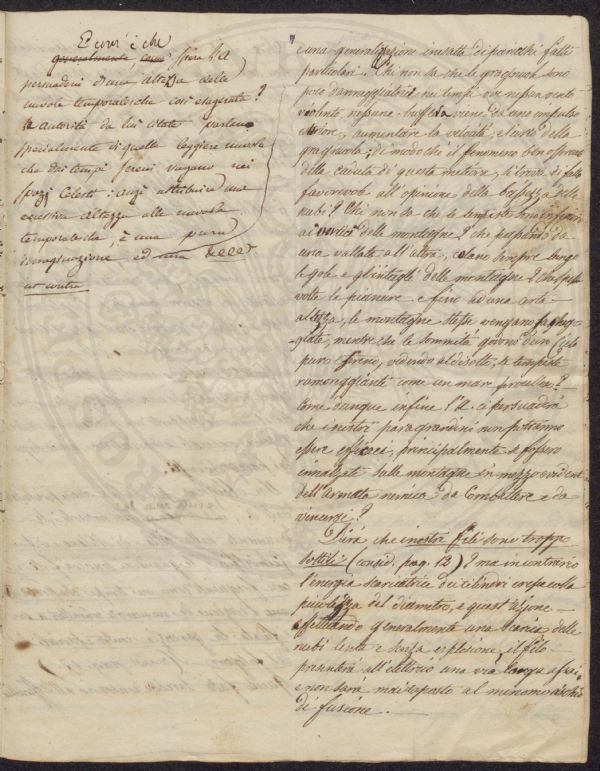 E come è che
generalmente, come farà l'A
persuaderci d'una altezza delle
nuvole temporalesche così esagerata?
Le autorità da lui citate parlano
specialmente di quelle leggiere nuvole
che dei tempi sereni vagano nei
spazj Celesti: anzi attribuire una
eccessiva altezza alle nuvole
temporalesche, è una pura
immaginazione ed una
e una generalizzazione inesatta di parecchi fatti
particolari. Chi non sa che le gragnuole sono
poco danneggiatrici nei tempi ove nessun vento
violento, nessuna buffera viene da uno impulso
ad aumentare la velocità, e l'urto della
gragnuola; di modo che il fenomeno ben osservato
della caduta di questa meteora, si trova di fatto
favorevole all'opinione della bassezza delle
nubi? Chi non sa che le tempeste sono inferiori
ai vertici delle montagne? che passando da
una vallata all'altra, colano sempre lungo
le gole e gl'intagli delle montagne? che spesse
volte le pianure e fino ad una certa
altezza, le montagne stesse vengano
mentre che le sommità godono d'un Cielo
puro e sereno, vedendo al disotto, la tempesta
rumoreggiante come un mare
Come dunque infine l'A. ci persuaderà
che i nostri paragrandini non potranno
essere efficaci, principalmente se fossero
innalzati sulle montagne in mezzo
dell'armata nemica da Combattere e da
vincersi?
Dirà che i nostri fili sono troppo
sottili (consid. pag. 12)? ma in contrario
l'energia scaricatrice dei cilindri cresce colla
picciolezza del diametro, e quest'azione
effettuando generalmente una scarica delle
nubi lenta e senza esplosione, il filo
presenterà all'elettrico una via larga assai,
e non sarà mai esposto al menomo rischio
di fusione.